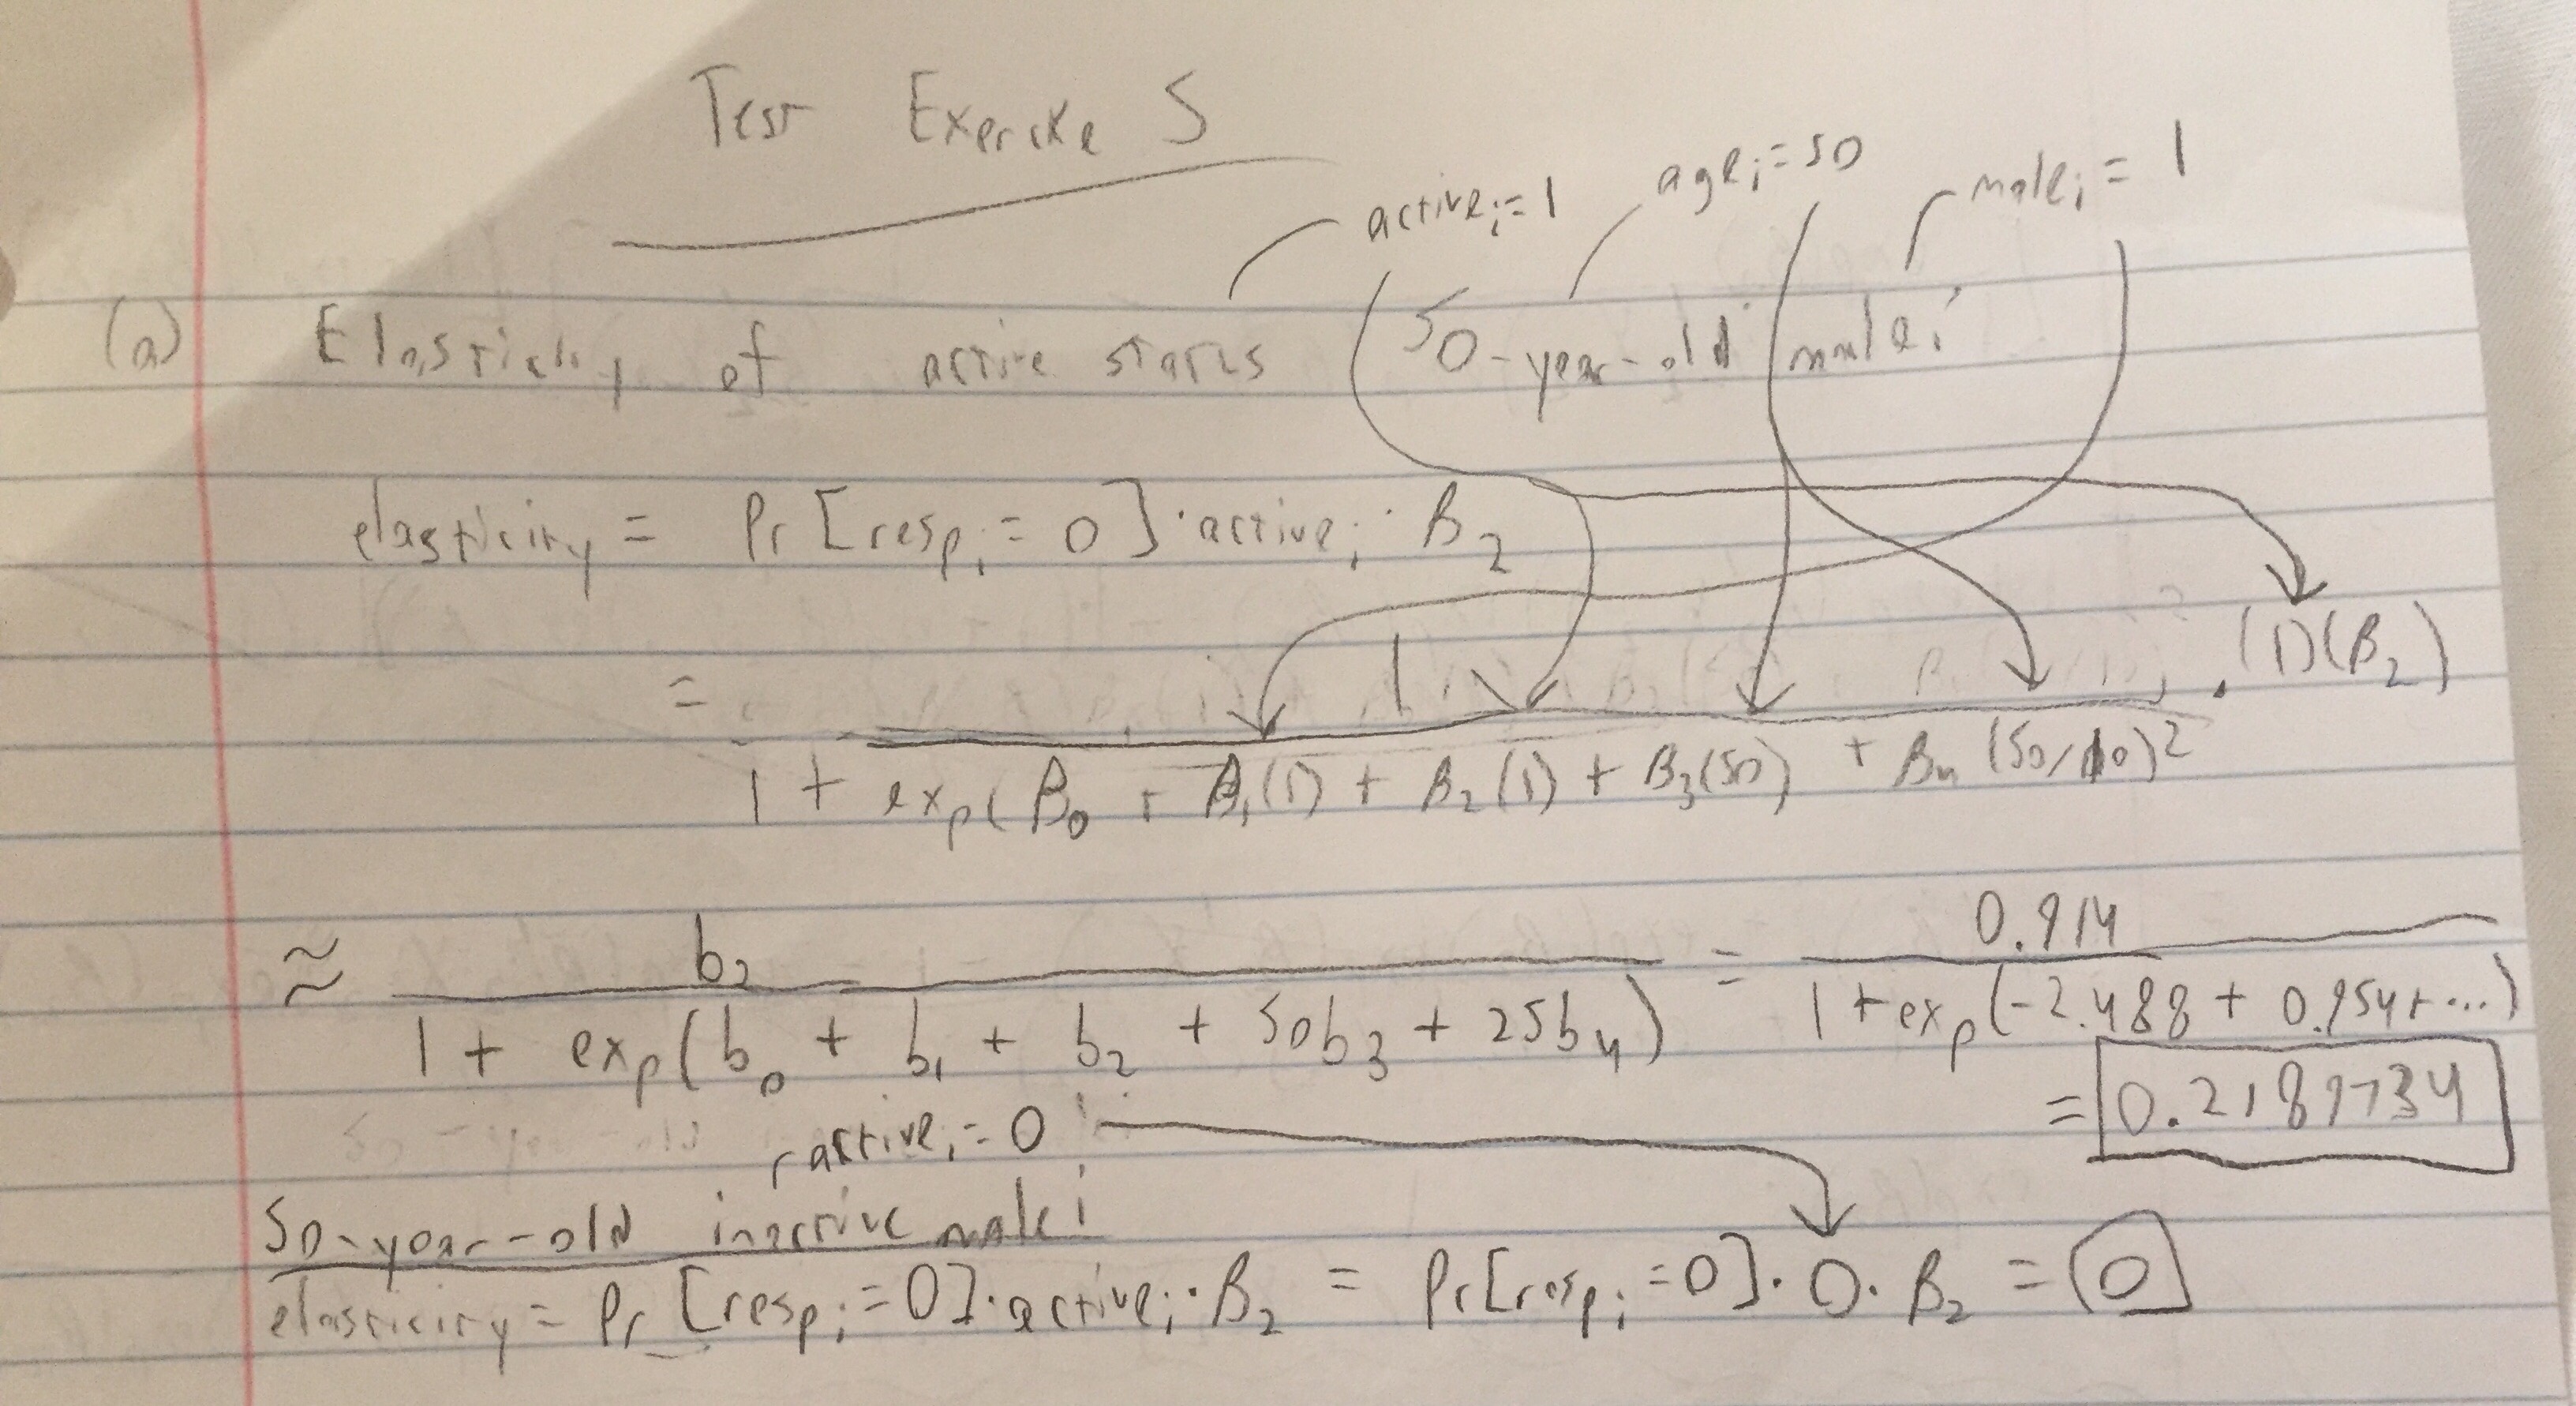 Test Exercise 5
active_i = 1 age_i = 50 male_i = 1
(a) Elasticity of active status 50-year-old male i
elasticity = Pr[resp_i = 0] · active_i · β_2
= 1 / (1 + exp(β_0 + β_1(1) + β_2(1) + β_3(50) + β_4(50/10)^2) · (1)(β_2)
≈ b_2 / (1 + exp(b_0 + b_1 + b_2 + 50b_3 + 25b_4)) = 0.914 / (1 + exp(-2.488 + 0.954 + ...))
= 0.2189734
active_i = 0
50-year-old inactive male i
elasticity = Pr[resp_i = 0] · active_i · β_2 = Pr[resp_i = 0] · 0 · β_2 = 0